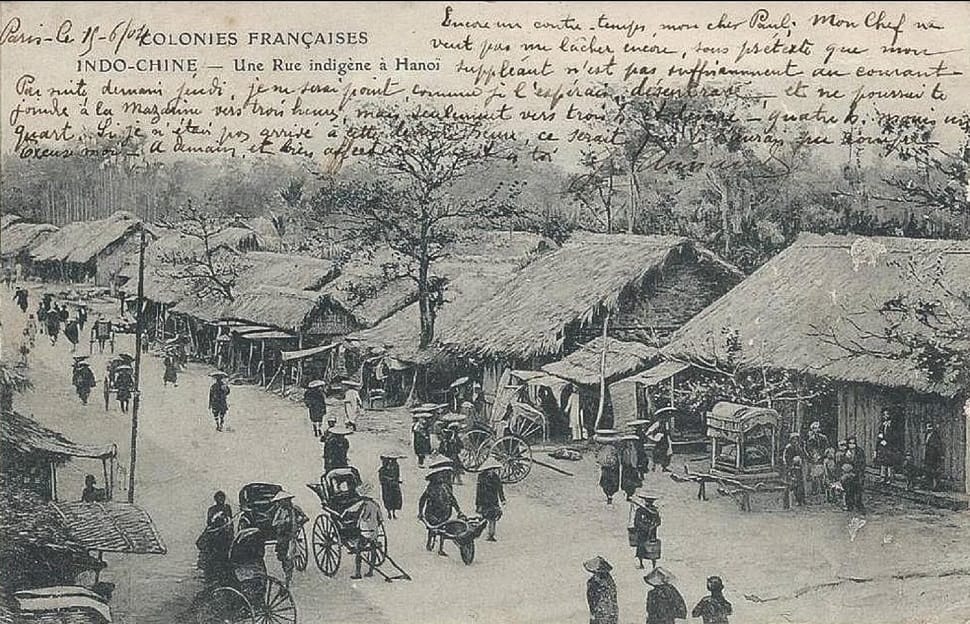 Paris-Le 15-6/04
COLONIES FRANÇAISES
INDO-CHINE — Une Rue indigène à Hanoï
Encore un contre-temps, mon cher Paul; Mon Chef ne
veut pas me lâcher encore, sous prétexte que mon
suppléant n'est pas suffisamment au courant-
Par suite demain jeudi, je ne serai point, comme je l'espérais, désentravé — et ne pourrai te
joindre à la Mazarine vers trois heures, mais seulement vers trois
quart. Si je n'étais pas arrivé à cette heure, ce serait
Excuse moi - A demain, et bien à toi